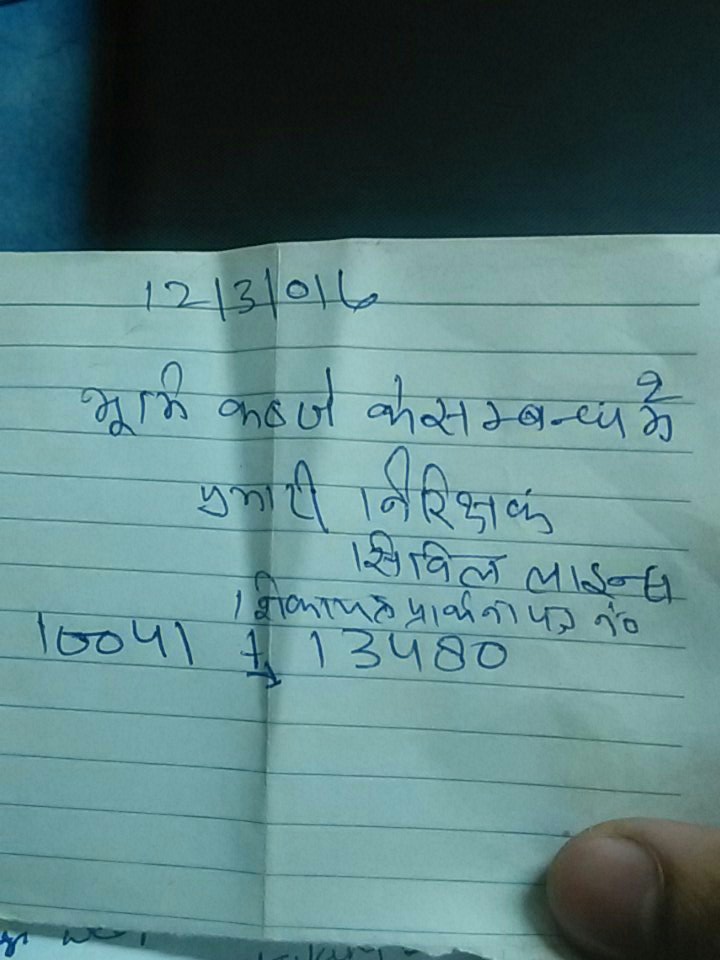 12/3/016
भूमि कब्जे के सम्बन्ध में
प्रभारी निरिक्षक
सिविल लाइन्स
शिकायत प्रार्थना पत्र नं०
10041 13480